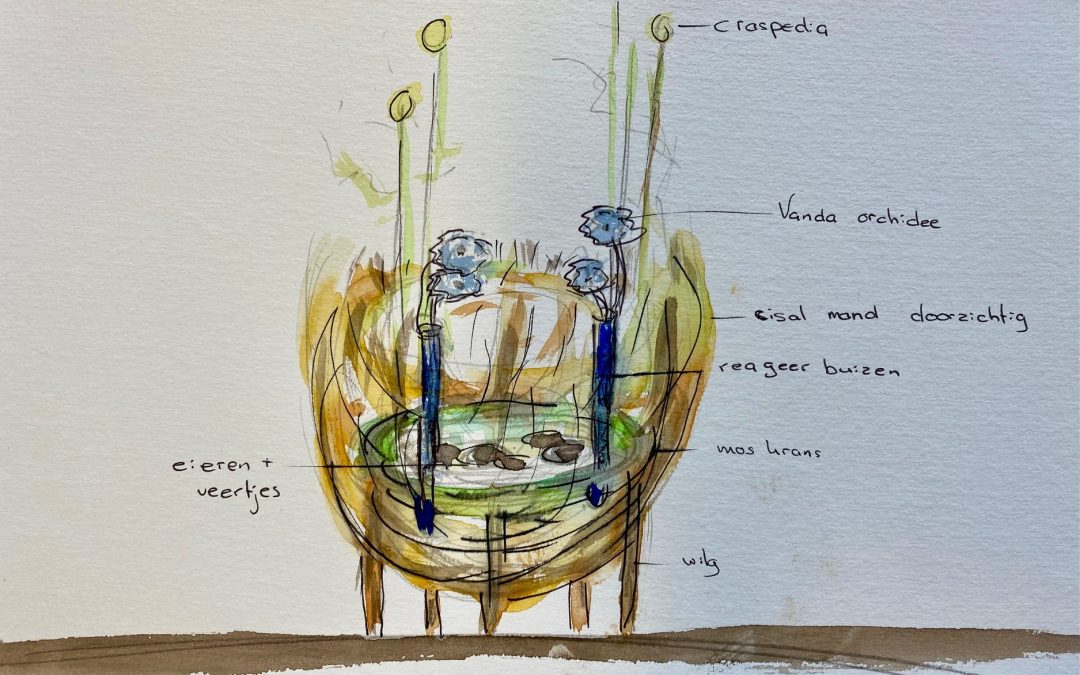 craspedia
Vanda orchidee
sisal mand doorzichtig
reageer buizen
mos krans
eieren +
veertjes
wilg